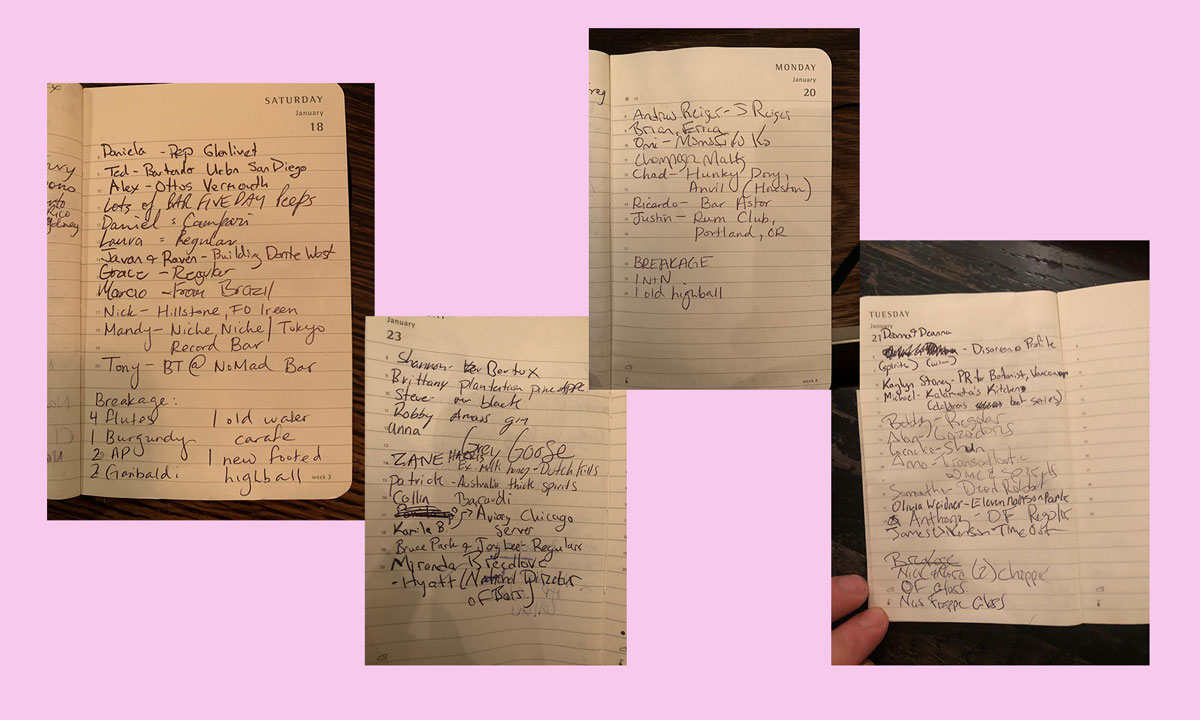 SATURDAY
January
18
Daniela - Rep Glenlivet
Ted - Bartender Urbn San Diego
Alex - Ottos Vermouth
Lots of BAR FIVE DAY Peeps
Daniel = Campari
Laura = Regular
Javan & Raven - Building Dante West
Grace - Regular
Marcio - From Brazil
Nick - Hillstone, FO Ireen
Mandy - Niche, Niche / Tokyo
Record Bar
Tony - BT @ NoMad Bar
Breakage:
4 flutes 1 old water
1 Burgundy carafe
2 AP 1 new footed
2 Garibaldi highball
week 3
January
23
Shannon - Bertux
Brittany plantation pine
Steve - black
Robby Amass gin
Anna
Grey Goose
ZANE HARRIS
Ex. Milk honey - Dutch Kills
Patrick - Australia thick spirits
Collin Bacardi
Aviary Chicago
Kamila B. Server
Bruce Park & Joey Lee - Regulars
Myranda Breedlove
- Hyatt (National Director
of Bars)
MONDAY
January
20
Andrew Reiger - J Reiger
Brian, Erica
Omi - Momofuku Ko
Champagne Maltz
Chad - Hunky Dory,
Anvil (Houston)
Ricardo - Bar Astor
Justin - Rum Club,
Portland, OR
BREAKAGE
1 N+N
1 old highball
week 4
TUESDAY
January
21
Deanna
- Disaronno Profile
(spirits) (wine)
Kaylyn Storey - PR for Botanist, Vancouver
Michael - Kalamata's Kitchen
(childrens book series)
Bobby - Regular
Alan - Cazadores
Gracke - Shan
Anna - Transatlantic
Wine & Spirits
Samantha - Dead Rabbit
Olivia Weidner - Eleven Madison Park
Anthony - OF Regular
James Wilkinson Time Out
Breakage
Nick & Nora (2) chipped
OF Glass
New Frappe Glass